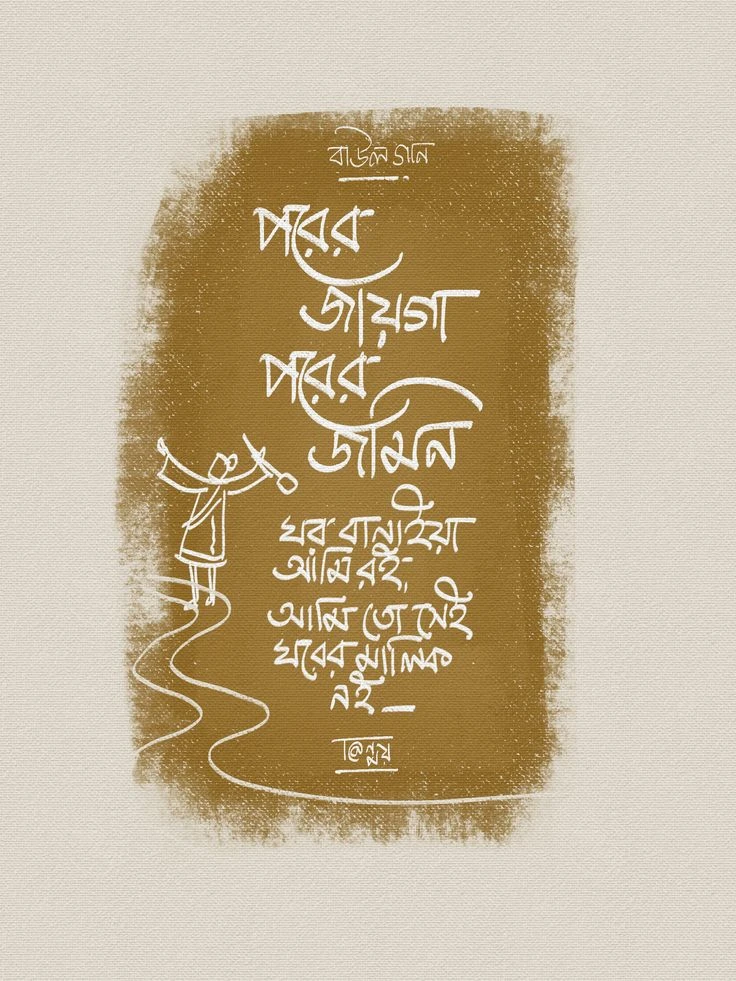 বাউল গান
পরের
জায়গা
পরের
জমিন
ঘর বানাইয়া
আমি রই,
আমি তো সেই
ঘরের মালিক
নই —